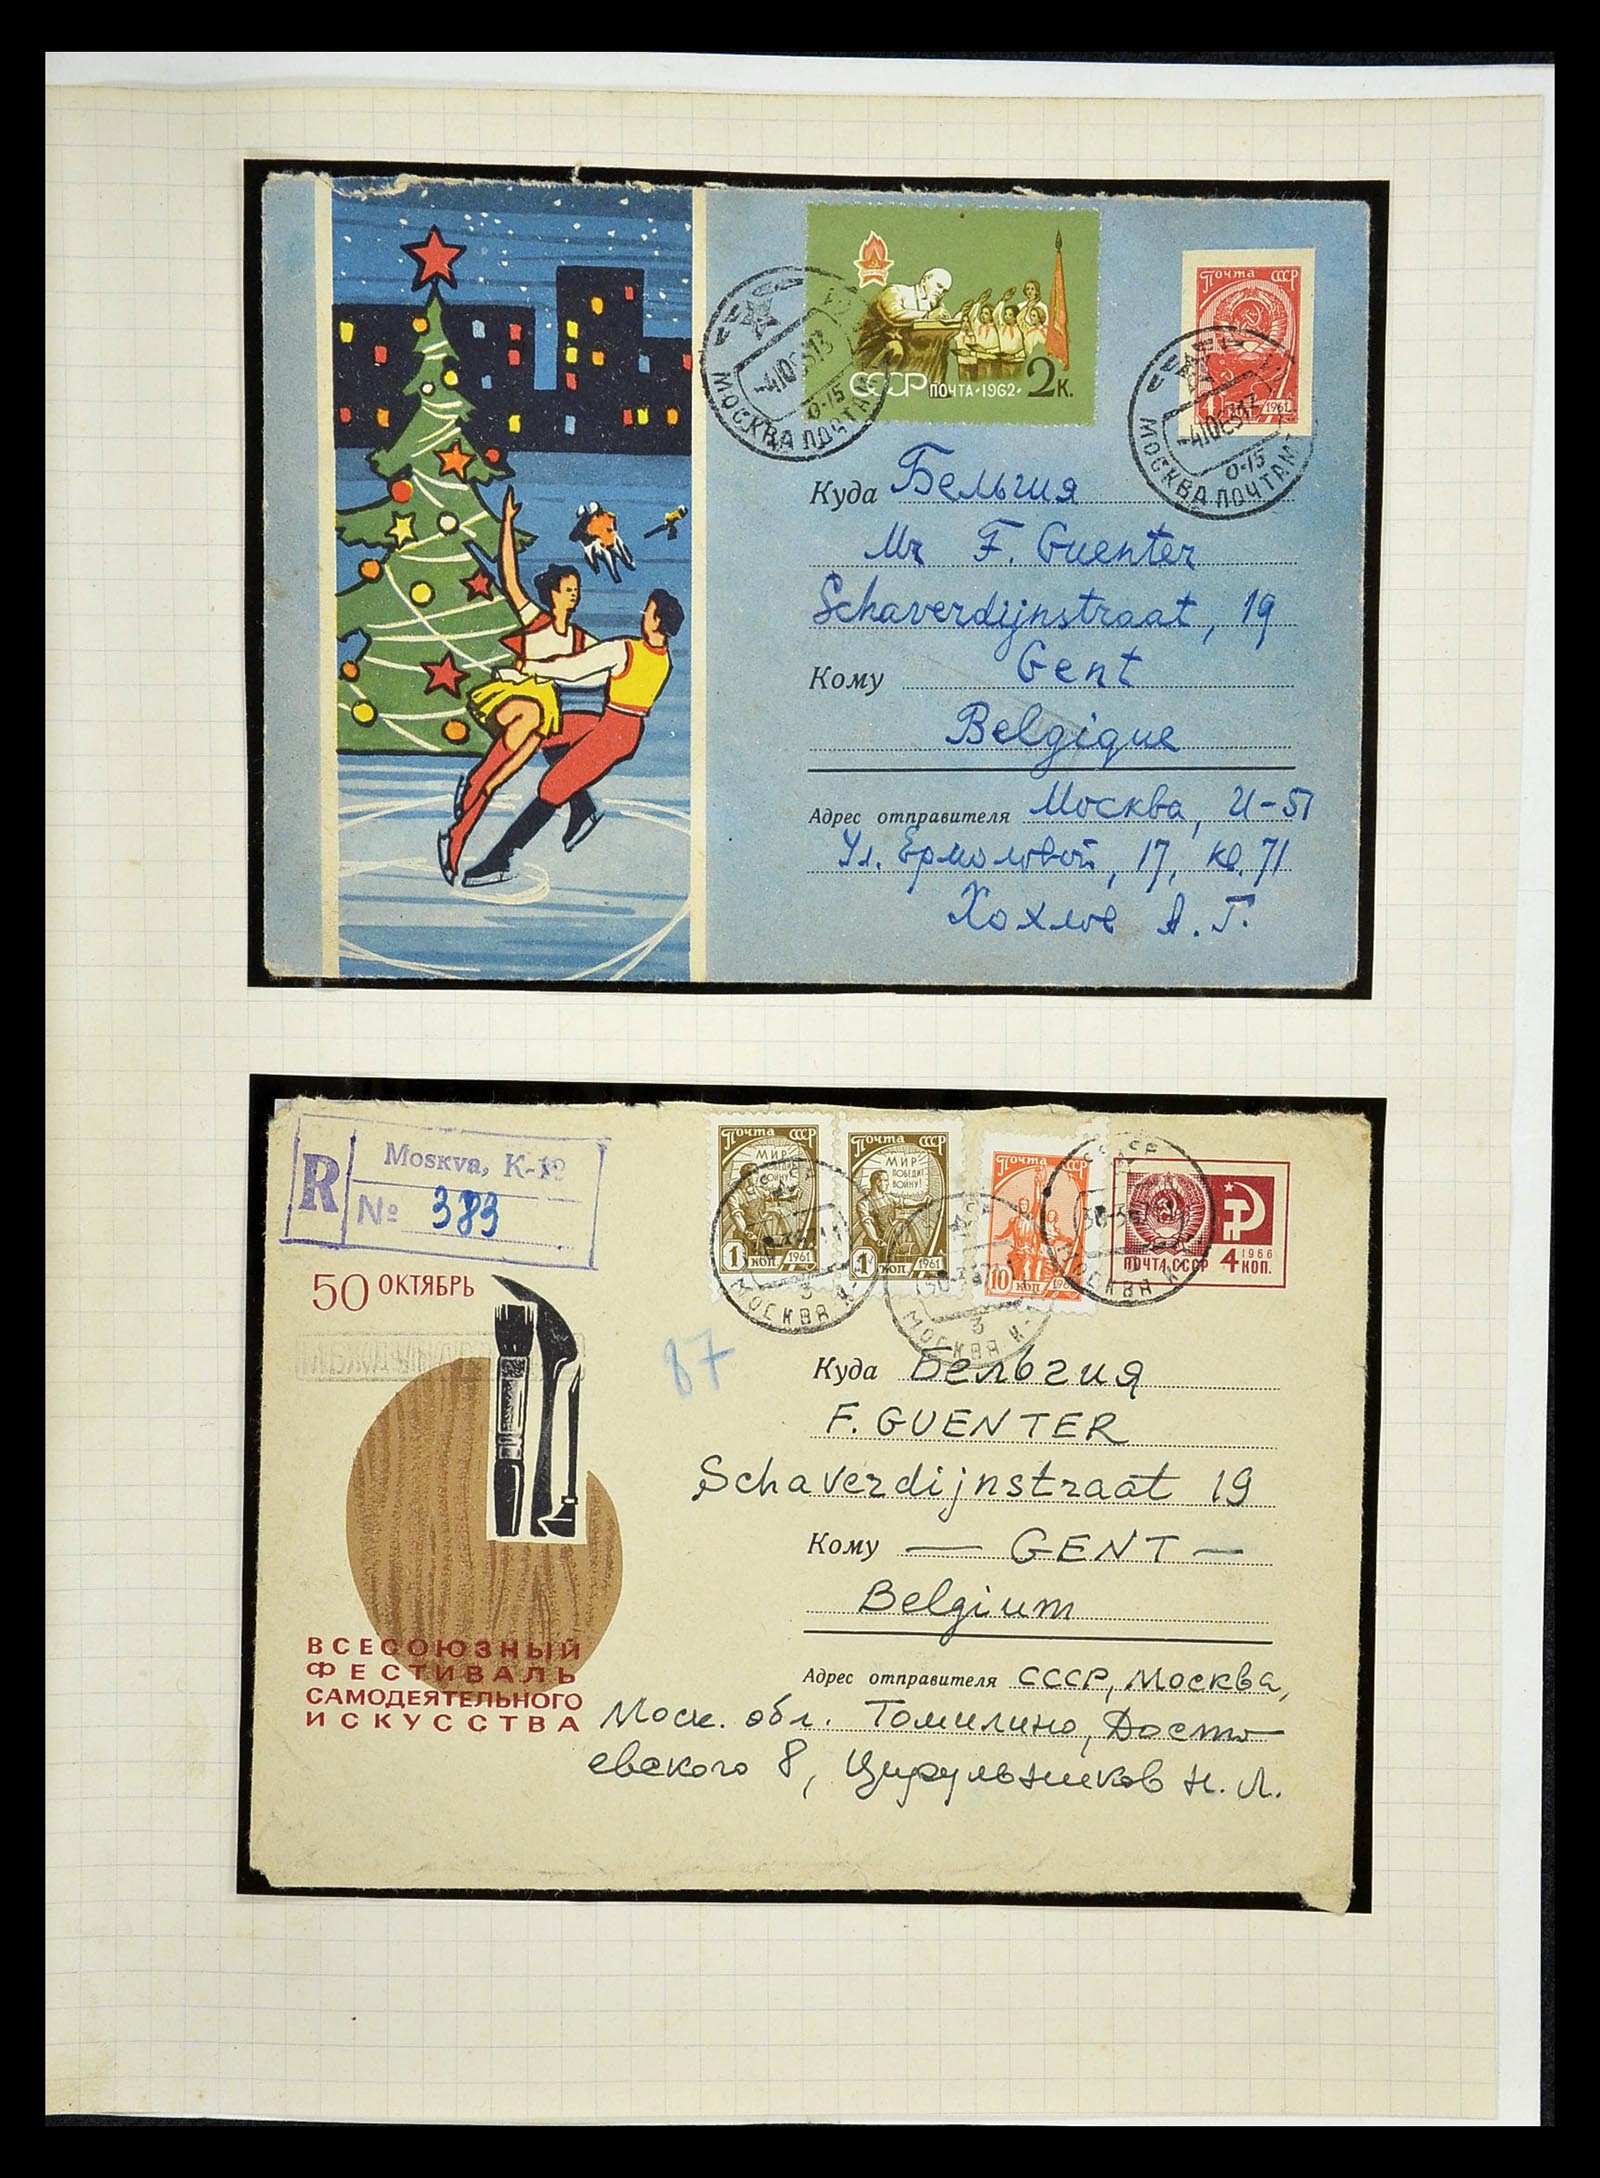 СССР ПОЧТА•1962• 2к.
Почта СССР
1961
МОСКВА ПОЧТАМ
МОСКВА ПОЧТАМ
Куда Бельгия
Mr F. Guenter
Schaverdijnstraat, 19
Кому Gent
Belgique
Адрес отправителя Москва, И-51
Ул. Ермоловой, 17, кв. 71
Хохлов А. Г.
R
Moskva, K-12
№ 383
Почта СССР
МИР ПОБЕДИТ ВОЙНУ!
1 КОП 1961
Почта СССР
МИР ПОБЕДИТ ВОЙНУ!
1 КОП 1961
Почта СССР
10 КОП
ПОЧТА СССР 4 1966 КОП.
МОСКВА
МОСКВА К-
3
50 ОКТЯБРЬ
87
Куда Бельгия
F. GUENTER
Schaverdijnstraat 19
Кому — GENT —
Belgium
Адрес отправителя СССР, Москва,
Моск. обл. Томилино, Досто-
евского 8, Цирульников Н. Л.
ВСЕСОЮЗНЫЙ
ФЕСТИВАЛЬ
САМОДЕЯТЕЛЬНОГО
ИСКУССТВА